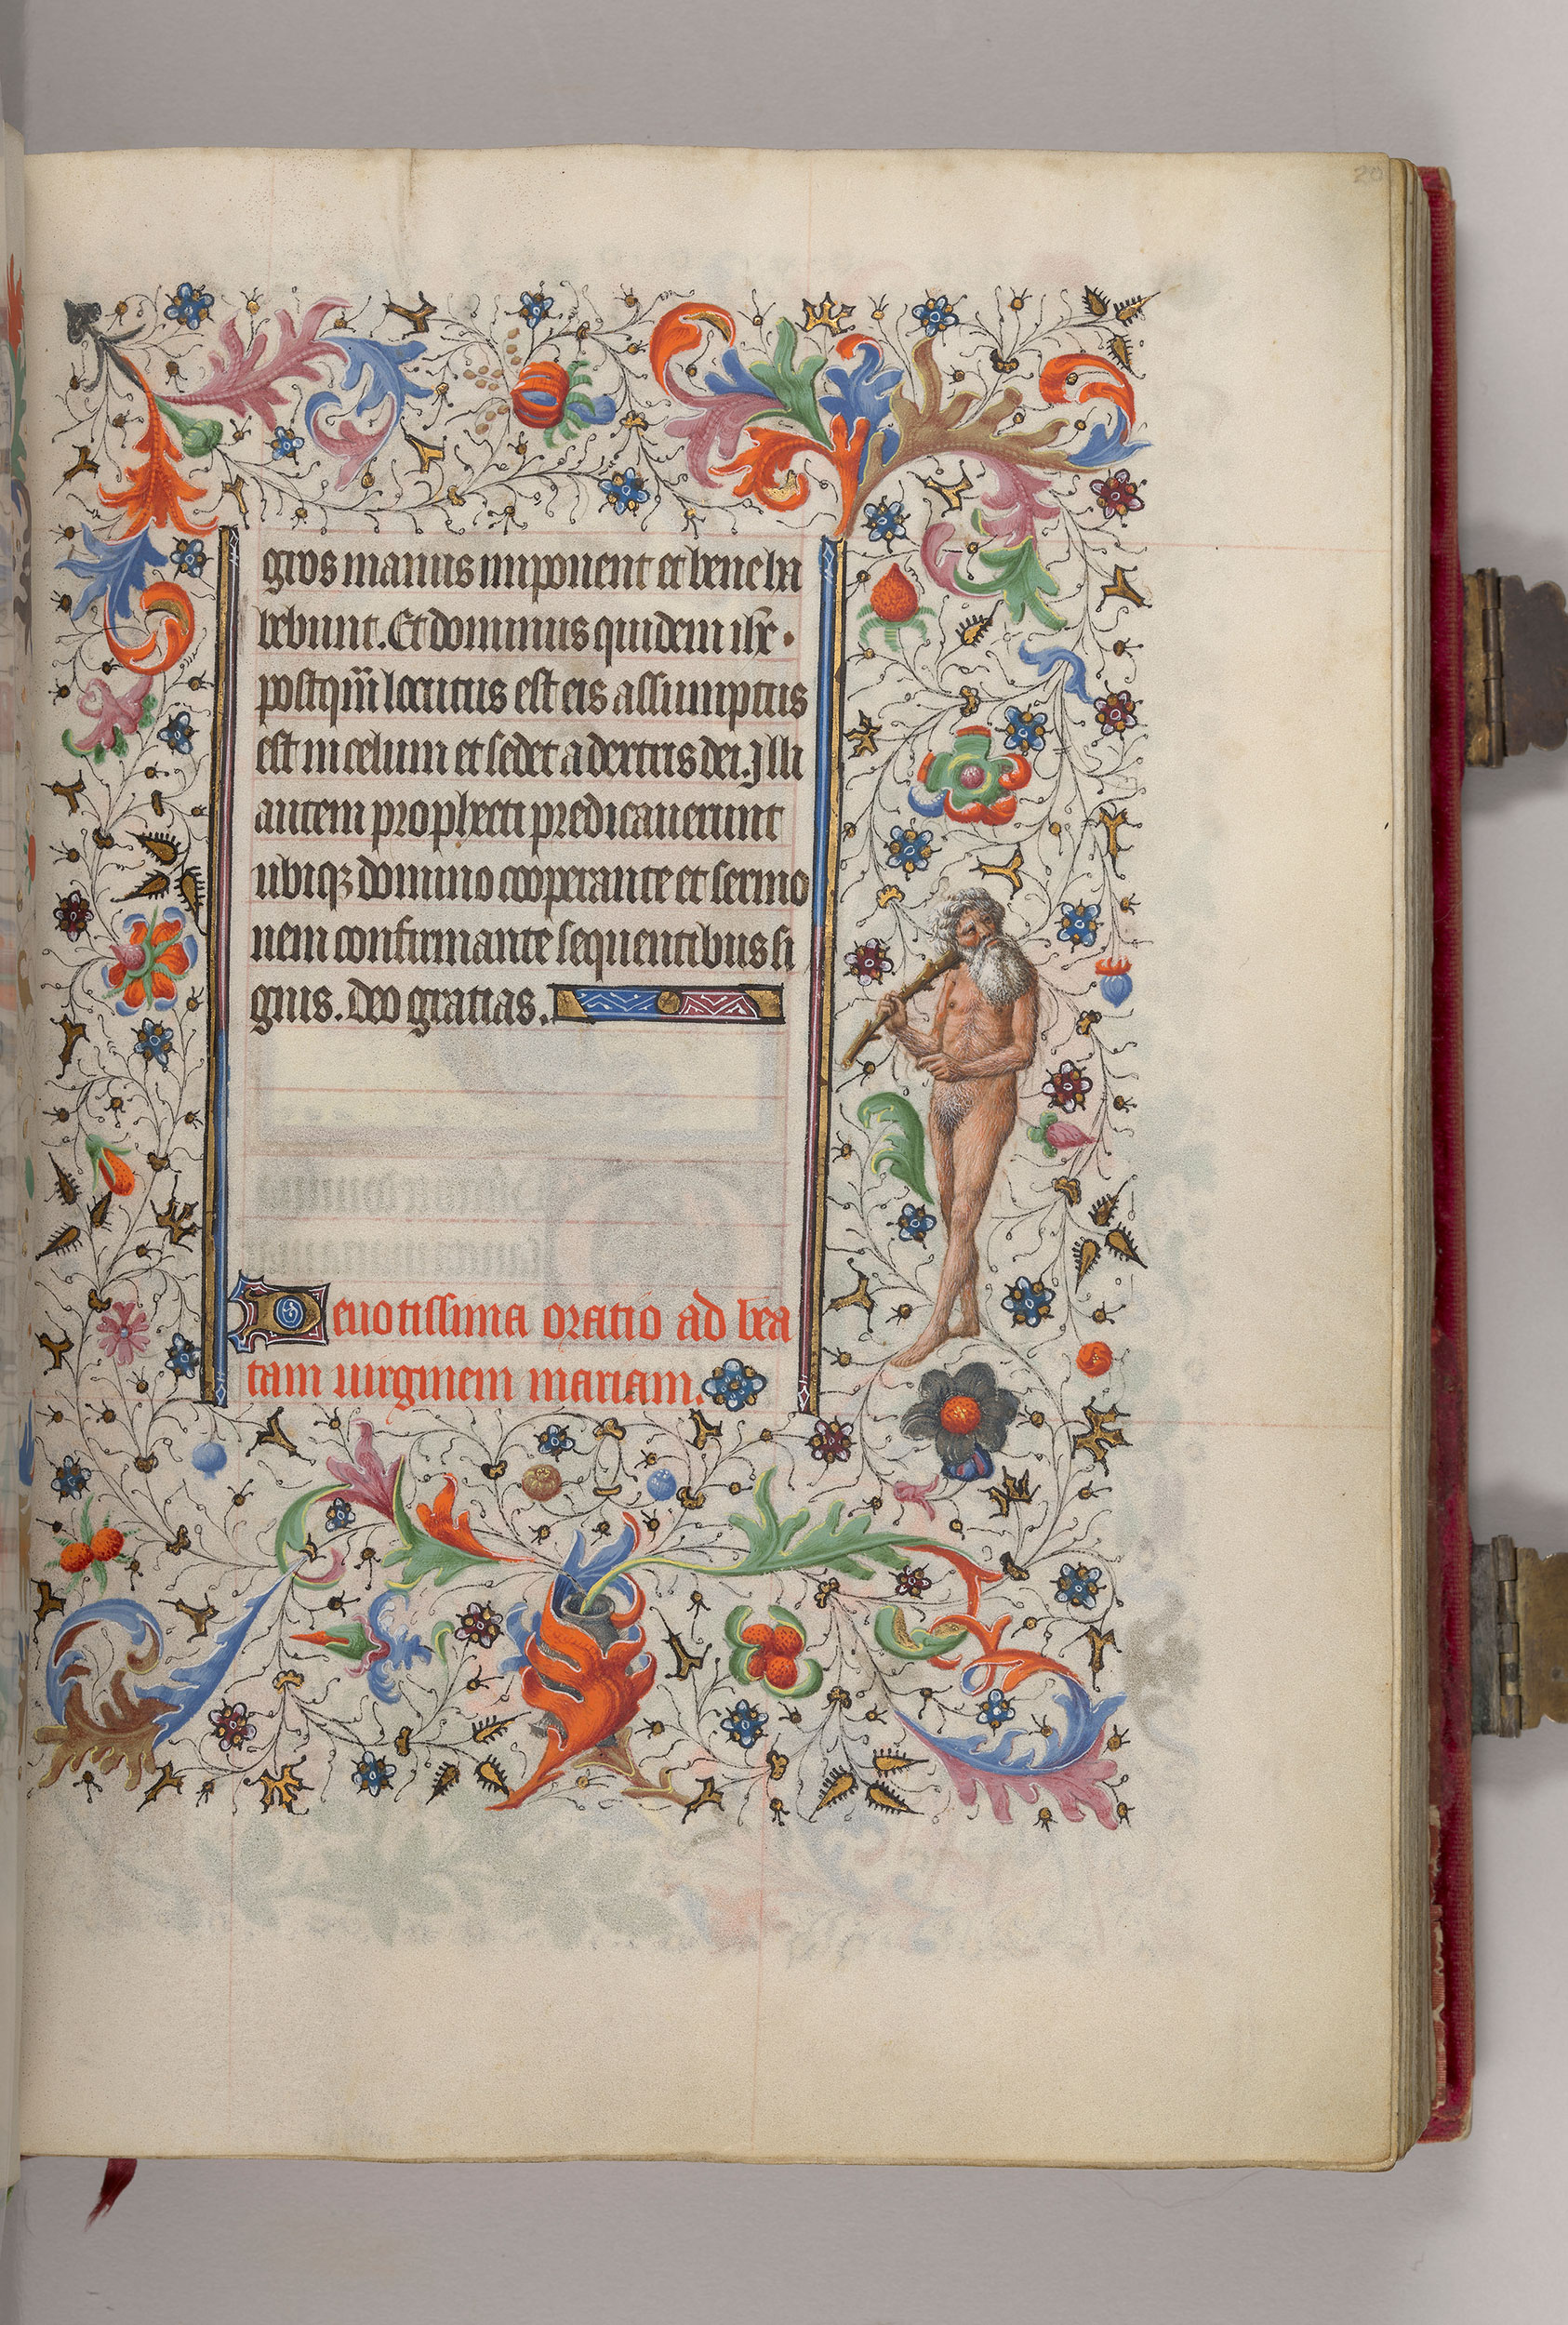 20
gros manus imponent et bene ha
bebunt. Et dominus quidem ihc.
postqm̃ locutus est eis assumptus
est in celum et sedet a dextris dei. Illi
autem prophecti predicauerunt
ubiqꝫ domino cooperante et sermo
nem confirmante sequentibus si
gnis. Deo gratias.
Deuotissima oratio ad bea
tam uirginem mariam.